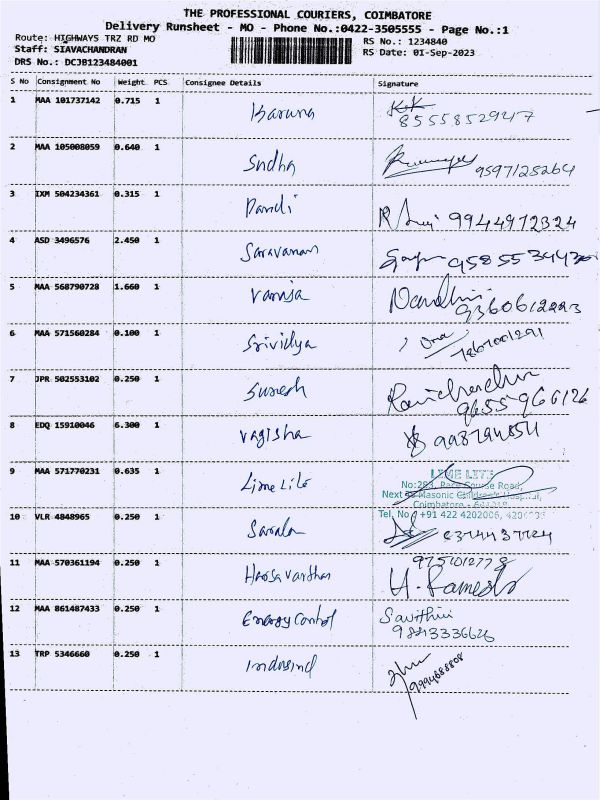 THE PROFESSIONAL COURIERS, COIMBATORE
Delivery Runsheet - MO - Phone No.:0422-3505555 - Page No.:1
Route: HIGHWAYS TRZ RD MO
RS No.: 1234840
Staff: SIAVACHANDRAN
RS Date: 01-Sep-2023
DRS No.: DCJB123484001
S No Consignment No Weight PCS Consignee Details Signature
1 MAA 101737142 0.715 1 Karuna
8555852947
2 MAA 105008059 0.640 1 Sudha 9597125264
3 IXM 504234361 0.315 1 Pandi 9944972324
4 ASD 3496576 2.450 1 Saravanan
5 MAA 568790728 1.660 1 Vamsa Nandhini
9360612223
6 MAA 571560284 0.100 1 Srividya Uma
7867001291
7 JPR 502553102 0.250 1 Suresh Ravichandran
9655966126
8 EDQ 15910046 6.300 1 Vagisha
9 MAA 571770231 0.635 1 Lime Lite
LIME LITE
No:283, Race Course Road,
Next to Masonic Children's Hospital,
Coimbatore - 641018
Tel. No +91 422 4202006,
10 VLR 4848965 0.250 1 Sarala
11 MAA 570361194 0.250 1 Harsavarthan
9751012778
H. Ramesh
12 MAA 861487433 0.250 1 Energy Control Savithiri
9843336626
13 TRP 5346660 0.250 1 Indusind
9994688808